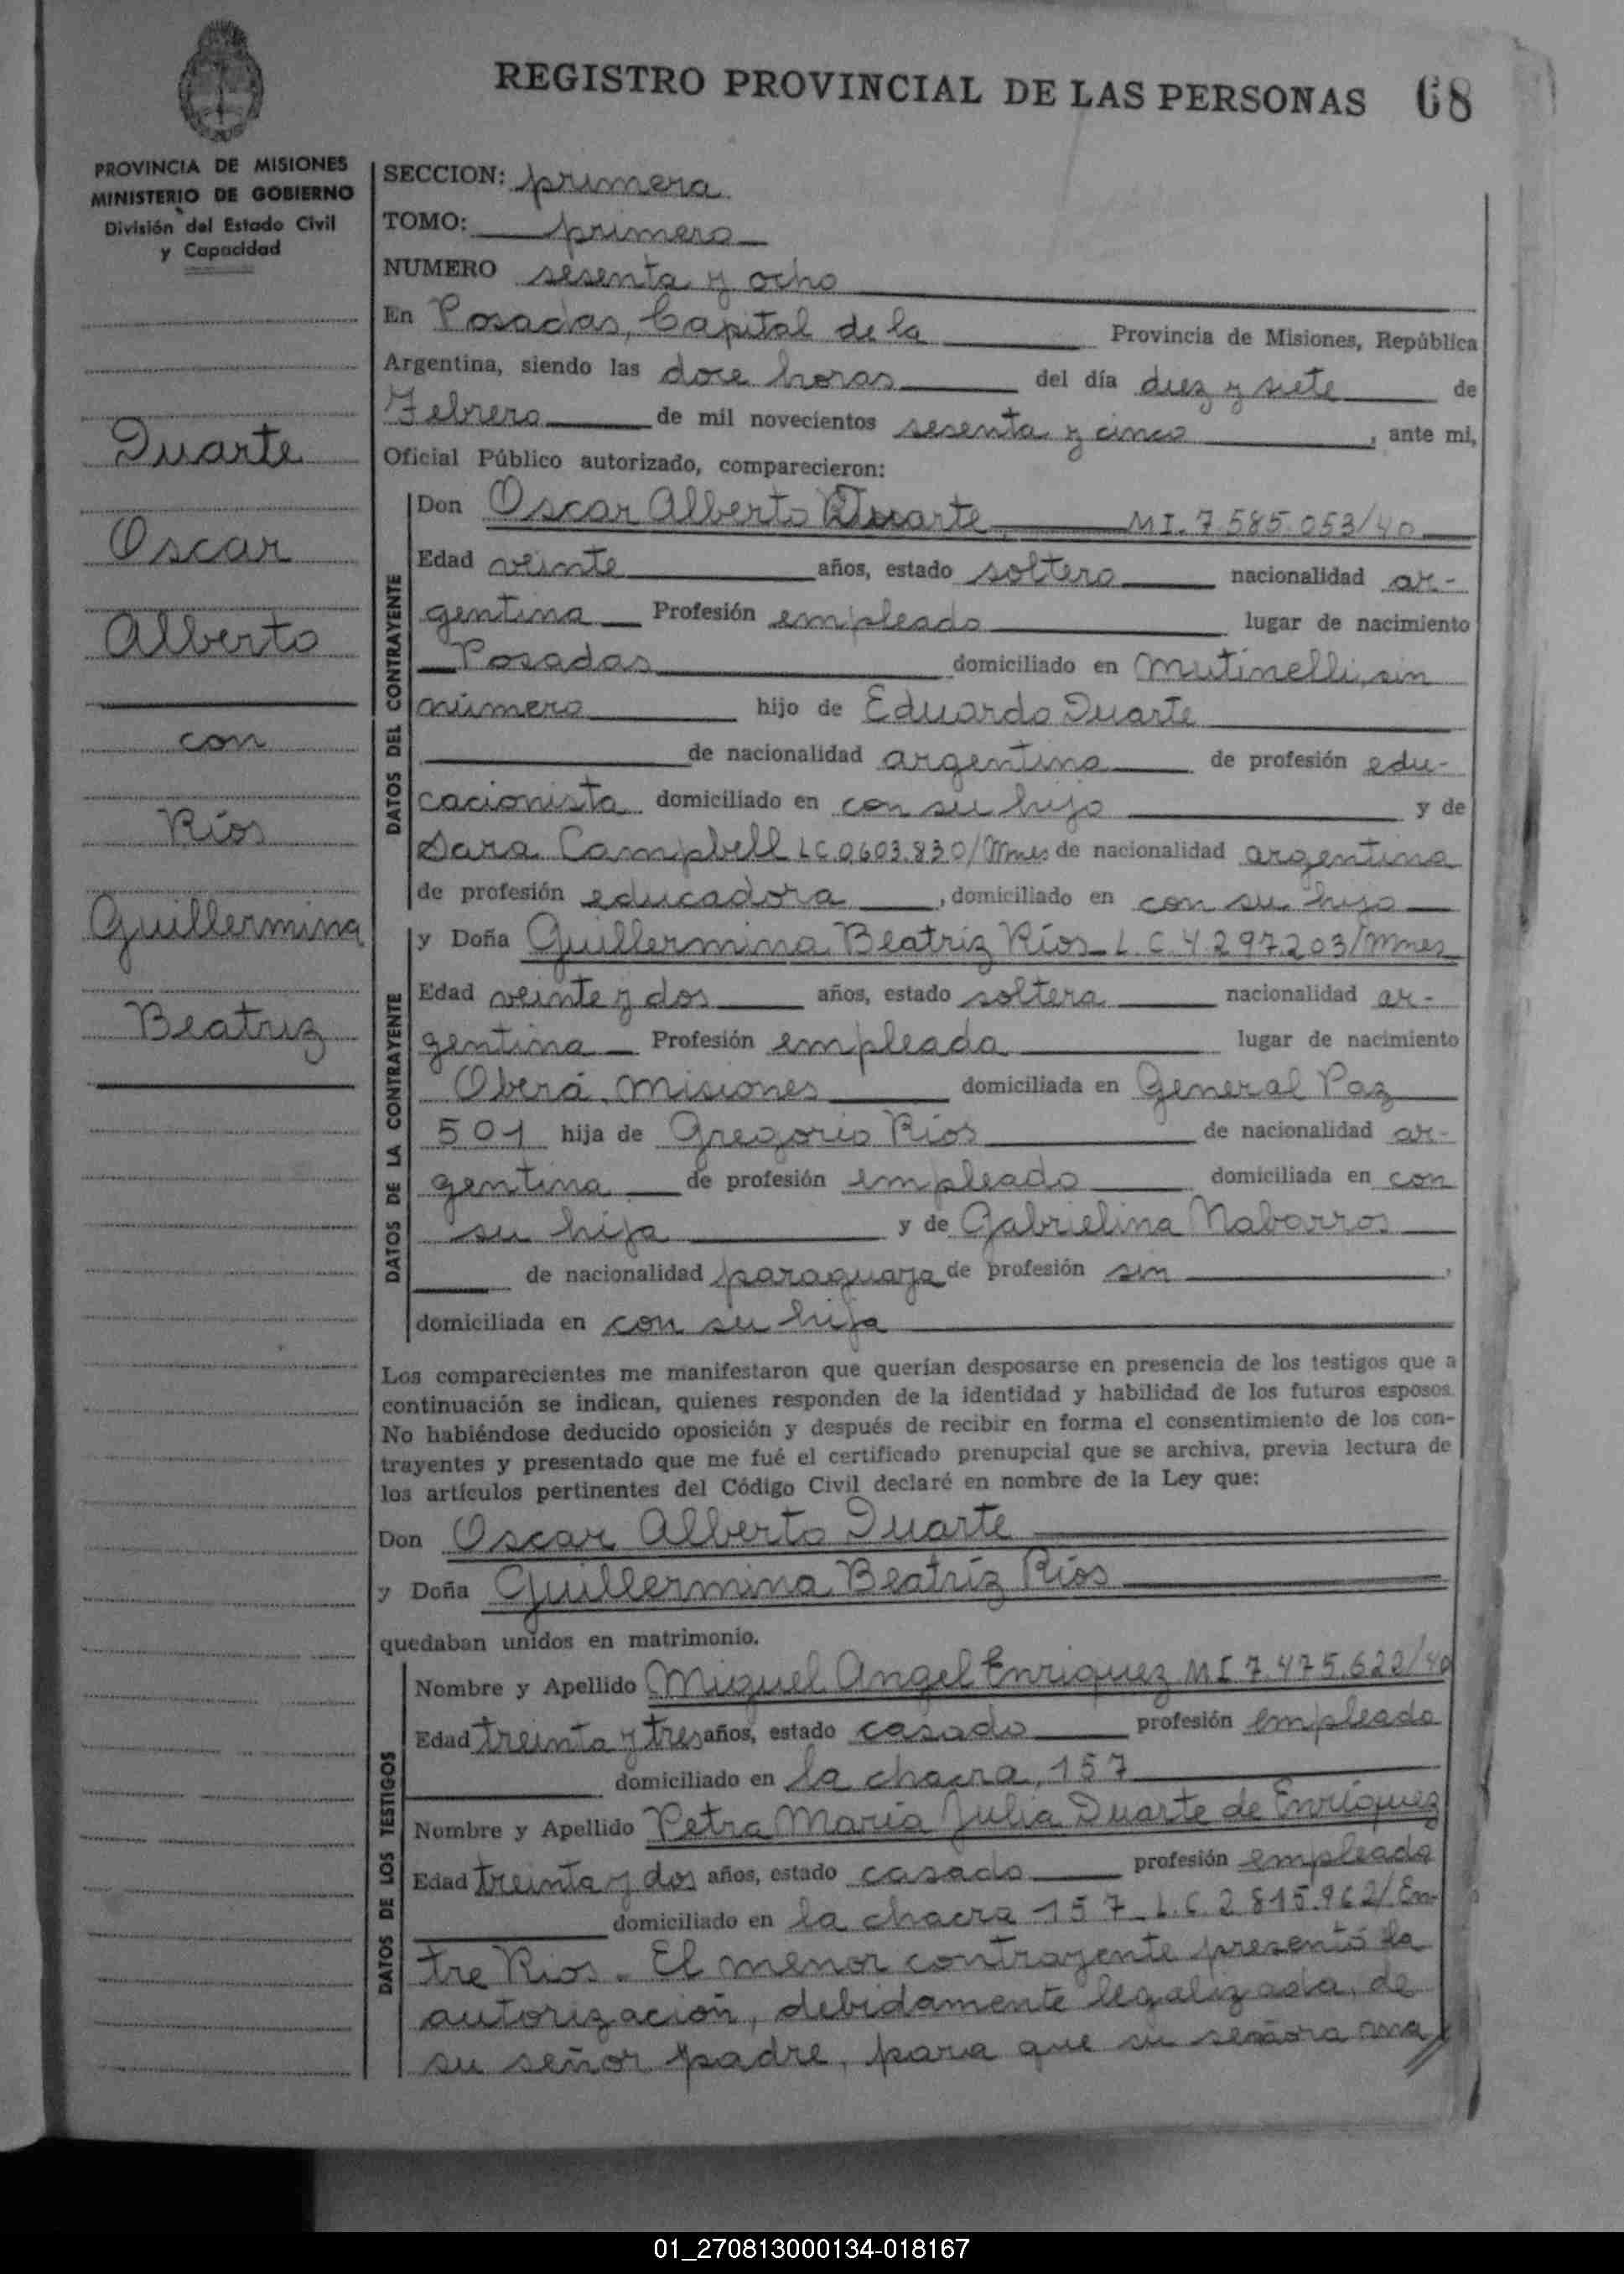 REGISTRO PROVINCIAL DE LAS PERSONAS 68
PROVINCIA DE MISIONES
MINISTERIO DE GOBIERNO
División del Estado Civil
y Capacidad
Duarte
Oscar
Alberto
con
Ríos
Guillermina
Beatriz
SECCION: primera
TOMO: primero
NUMERO sesenta y ocho
En Posadas, Capital de la Provincia de Misiones, República
Argentina, siendo las doce horas del día diez y siete de
Febrero de mil novecientos sesenta y cinco, ante mi,
Oficial Público autorizado, comparecieron:
DATOS DEL CONTRAYENTE
Don Oscar Alberto Duarte MI. 7.585.053/40
Edad veinte años, estado soltero nacionalidad ar-
gentina Profesión empleado lugar de nacimiento
Posadas domiciliado en Mutinelli, sin
número hijo de Eduardo Duarte
de nacionalidad argentina de profesión edu-
cacionista domiciliado en con su hijo y de
Sara Campbell LC.0603.830/Mnes de nacionalidad argentina
de profesión educadora, domiciliado en con su hijo
DATOS DE LA CONTRAYENTE
y Doña Guillermina Beatriz Ríos L.C.4.297.203/Mnes
Edad veinte y dos años, estado soltera nacionalidad ar-
gentina Profesión empleada lugar de nacimiento
Oberá, Misiones domiciliada en General Paz
501 hija de Gregorio Ríos de nacionalidad ar-
gentina de profesión empleado domiciliada en con
su hija y de Gabrielina Nabarros
de nacionalidad paraguaya de profesión sin,
domiciliada en con su hija
Los comparecientes me manifestaron que querían desposarse en presencia de los testigos que a
continuación se indican, quienes responden de la identidad y habilidad de los futuros esposos.
No habiéndose deducido oposición y después de recibir en forma el consentimiento de los con-
trayentes y presentado que me fué el certificado prenupcial que se archiva, previa lectura de
los artículos pertinentes del Código Civil declaré en nombre de la Ley que:
Don Oscar Alberto Duarte
y Doña Guillermina Beatriz Ríos
quedaban unidos en matrimonio.
DATOS DE LOS TESTIGOS
Nombre y Apellido Miguel Angel Enriquez MI 7.475.622/40
Edad treinta y tres años, estado casado profesión empleado
domiciliado en la chacra, 157
Nombre y Apellido Petra María Julia Duarte de Enríquez
Edad treinta y dos años, estado casado profesión empleada
domiciliado en la chacra 157 L.C. 2.815.962/En-
tre Rios. El menor contrayente presentó la
autorización, debidamente legalizada, de
su señor padre, para que su señora ma//
01_270813000134-018167